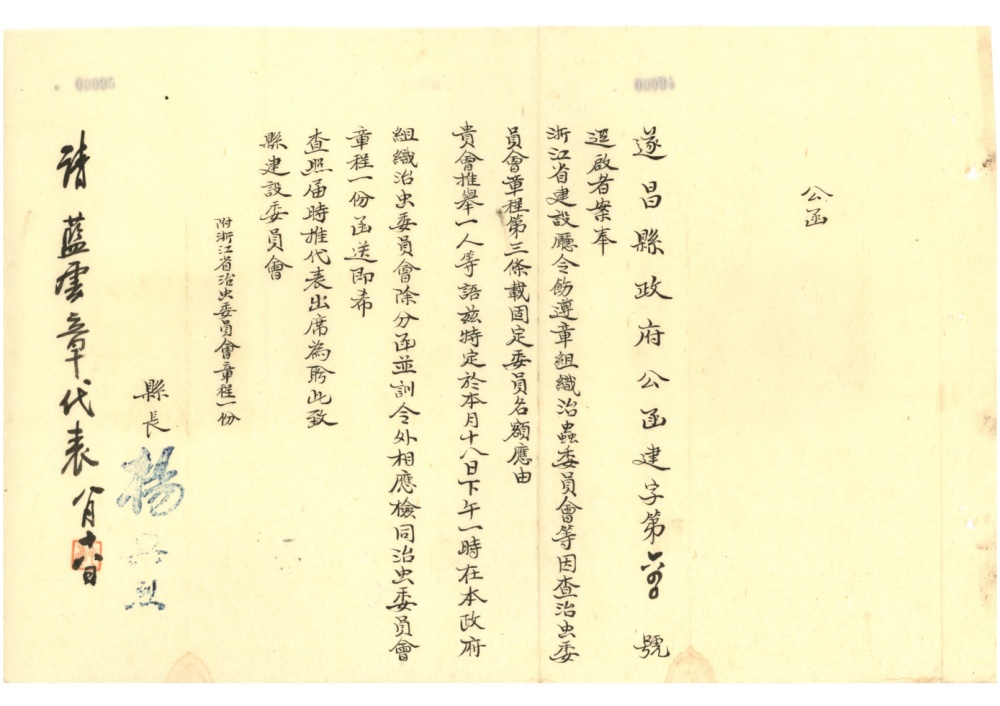 公函
遂昌縣政府公函建字第號
逕啟者案奉
浙江省建設廳令飭遵章組織治蟲委員會等因查治虫委
員會章程第三條載固定委員名額應由
貴會推舉一人等語茲特定於本月十八日下午一時在本政府
組織治虫委員會除分函並訓令外相應檢同治虫委員會
章程一份函送即希
查照届時推代表出席為盼此致
縣建設委員會
附浙江省治虫委員會章程一份
縣長楊
請藍雲章代表 十八日
00094
00095